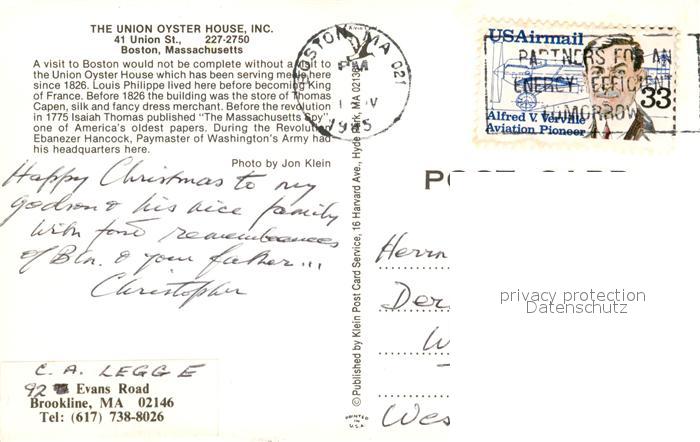 THE UNION OYSTER HOUSE, INC.
41 Union St., 227-2750
Boston, Massachusetts
A visit to Boston would not be complete without a visit to
the Union Oyster House which has been serving meals here
since 1826. Louis Philippe lived here before becoming King
of France. Before 1826 the building was the store of Thomas
Capen, silk and fancy dress merchant. Before the revolution
in 1775 Isaiah Thomas published "The Massachusetts Spy"
one of America's oldest papers. During the Revolution
Ebanezer Hancock, Paymaster of Washington's Army had
his headquarters here.
Photo by Jon Klein
Happy Christmas to my
godson & his nice family
with fond remembrances
of Bln. & your father...
Christopher
C. A. LEGGE
92 Evans Road
Brookline, MA 02146
Tel: (617) 738-8026
© Published by Klein Post Card Service, 16 Harvard Ave., Hyde Park, MA 02136
PRINTED IN U.S.A.
BOSTON, MA 021
PM
1985
USAirmail
PARTNERS FOR AN
ENERGY EFFICIENT
TOMORROW
33
Alfred V. Verville
Aviation Pioneer
POST CARD
Herrn
Der
W
Wes
privacy protection
Datenschutz